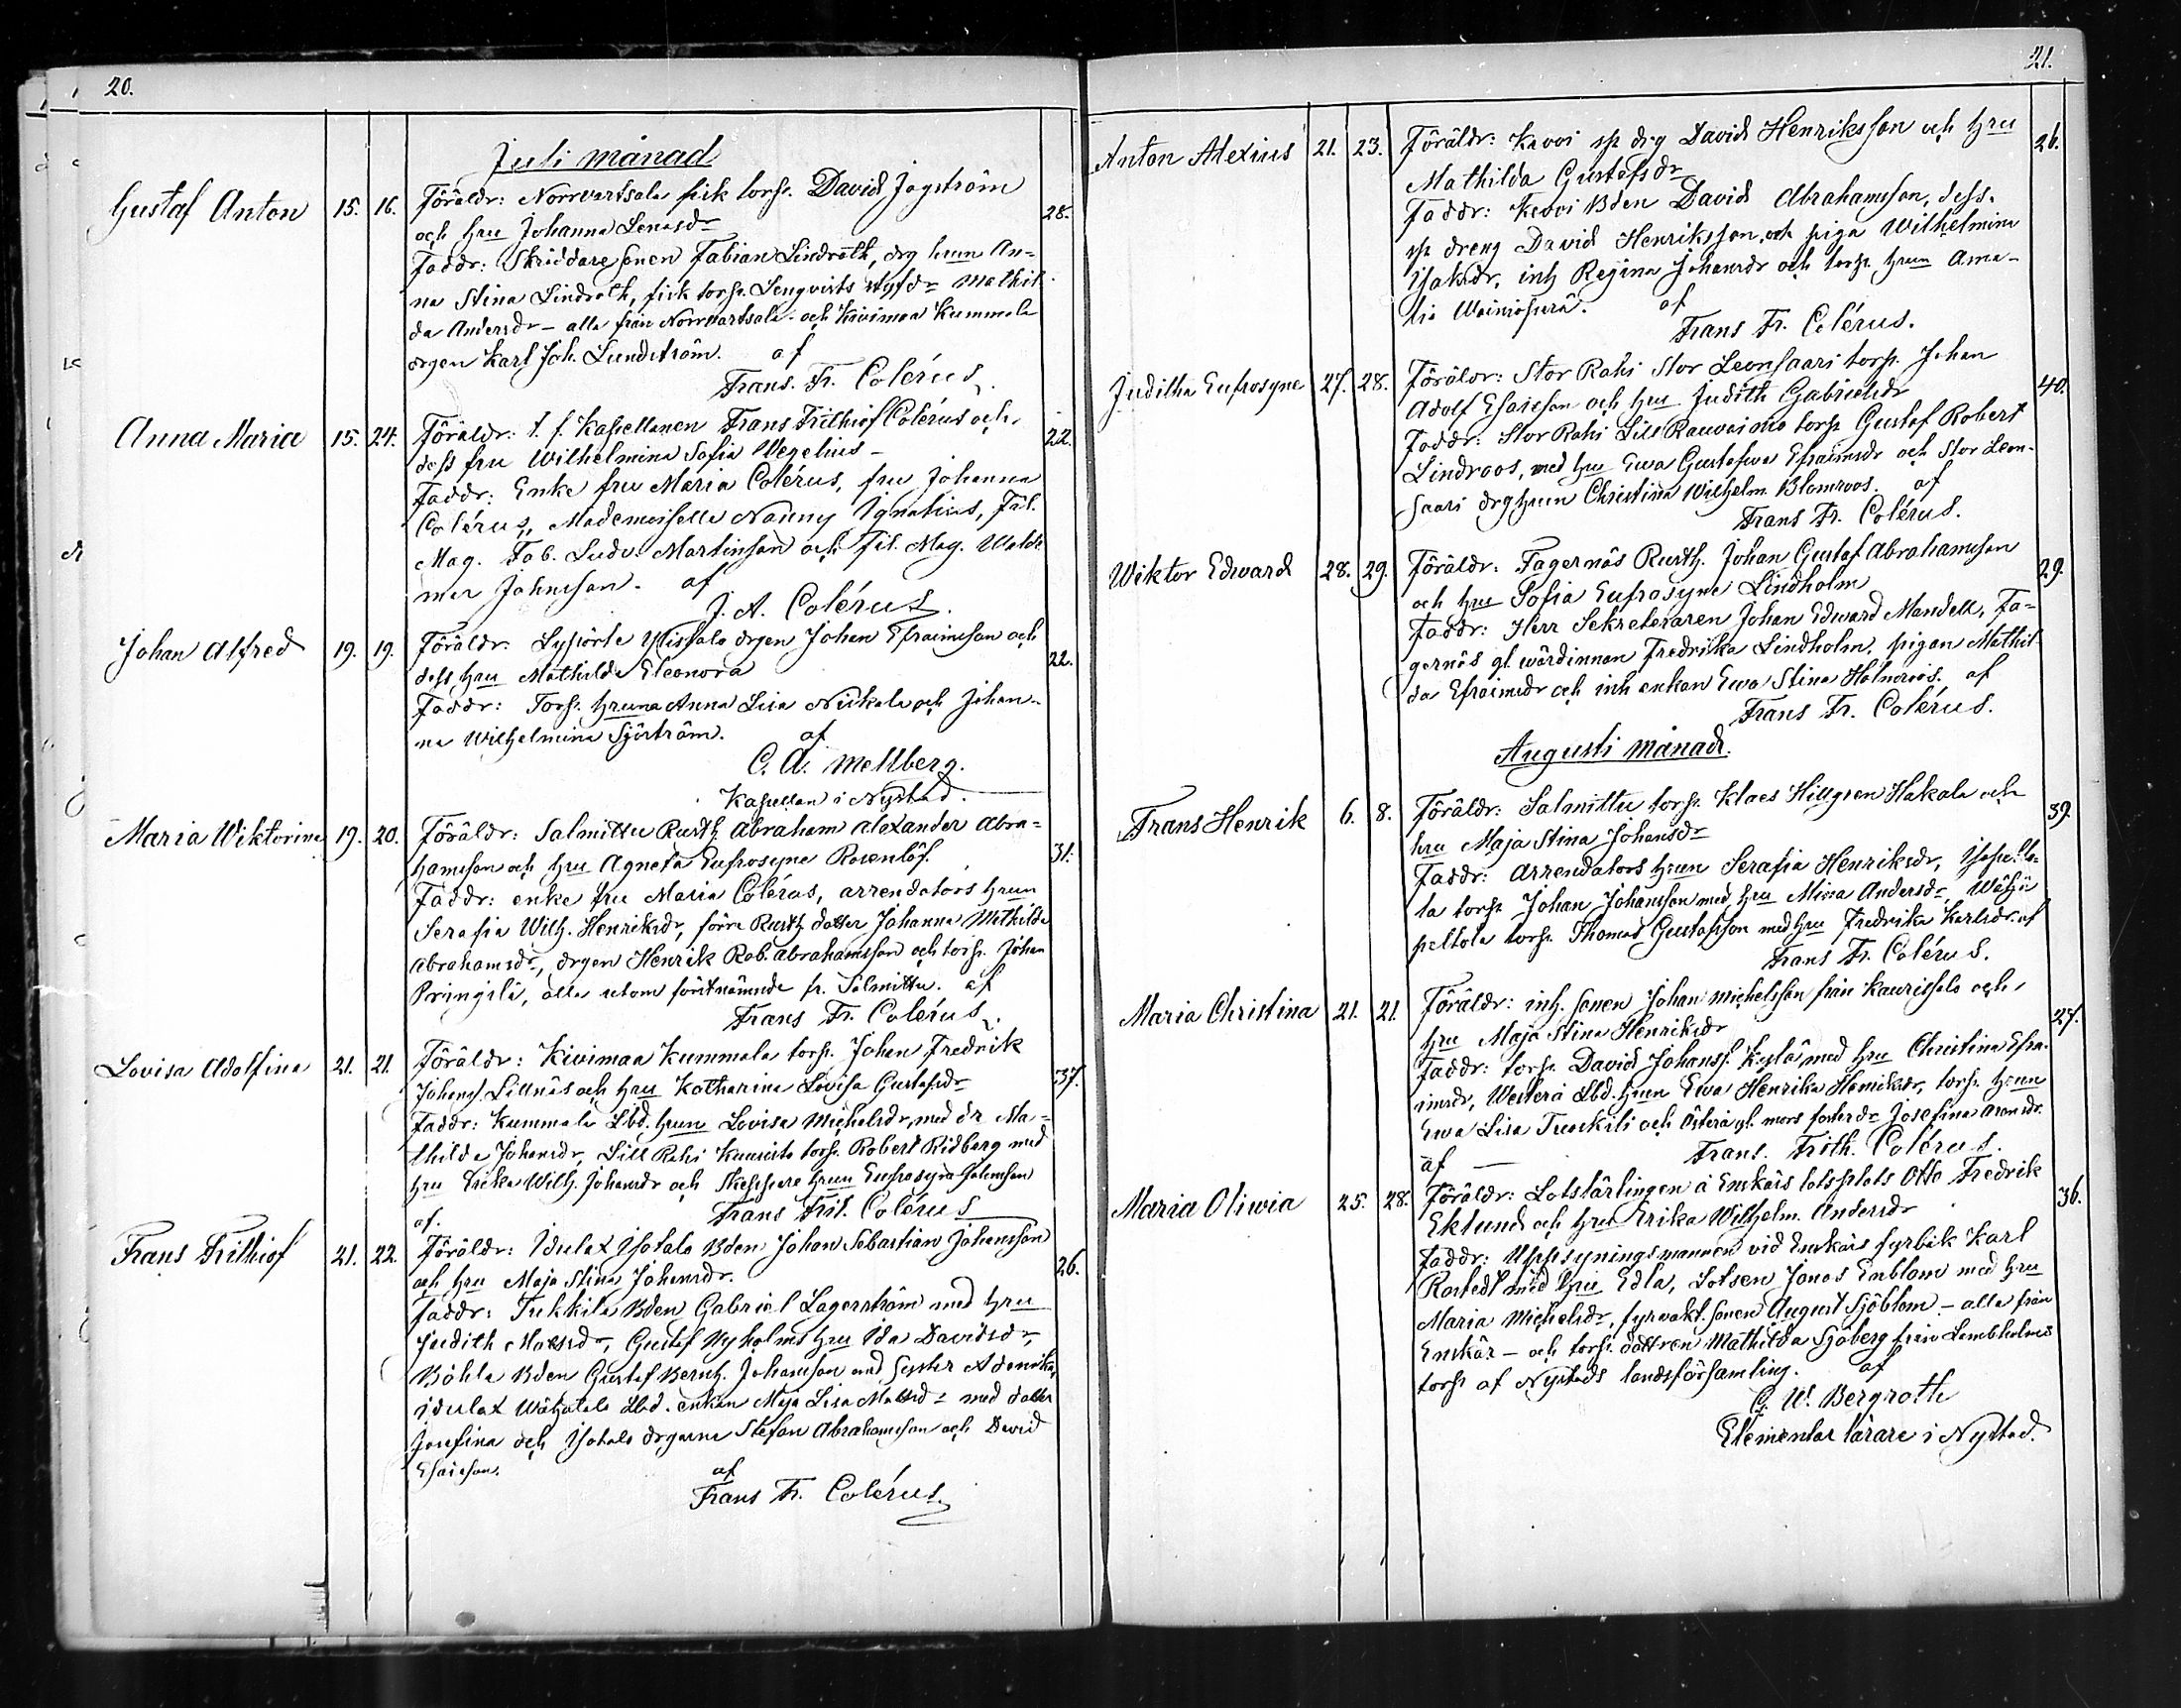 20.
Juli månad
Gustaf Anton 15. 16. Föräldr: Norrvartsala fisk torp. David Jagström 28.
och hru Johanna Lenasdr
Faddr: Skräddare sonen Fabian Lindroth, drg hrun An-
na Stina Lindroth, fisk torp. Lengvists styfdr Mathil
da Andersdr - alla från Norrvartsala - och Kivimaa Kummala
drgen Karl Joh. Lundström. af
Frans. Fr. Colérus.
Anna Maria 15. 24. Föräldr: t. f. Kapellanen Frans Frithiof Colérus och 22.
dess fru Wilhelmina Sofia Wegelius -
Faddr: Enke fru Maria Colérus, fru Johanna
Colérus, Mademoiselle Nanny Ignatius, Fil.
Mag. Fab. Ludv. Martinson och Fil. Mag. Walde
mar Johnsson. af
J. A. Colérus.
Johan Alfred 19. 19. Föräldr: Lypörte drgen Johan Efraimsson och 22.
dess hru Mathilda Eleonora
Faddr: Torp. hruna Anna Lisa Nikala och Johan-
na Wilhelmina Sjöström. af
C. A. Mellberg.
Kapellan i Nystad.
Maria Wiktorina 19. 20. Föräldr: Salmittu Rusth Abraham Alexander Abra= 31.
hamsson och hru Agneta Eufrosyne Rosenlöf.
Faddr: enke fru Maria Colérus, arrendators hrun
Serafia Wilh. Henriksdr, förre Rusth dotter Johanna Mathilda
Abrahamsdr, drgen Henrik Rob. Abrahamsson och torp. Johan
Pringilä, alla utom förstnämnde fr. Salmittu. af
Frans Fr. Colérus.
Lovisa Adolfina 21. 21. Föräldr: Kivimaa Kummala torp. Johan Fredrik 37.
Johans. Lillnäs och hru Katharina Lovisa Gustafsdr
Faddr: Kummala Lbd. hrun Lovisa Michelsdr, med dr Ma-
thilda Johansdr, Lill Rahi Kuusisto torp. Robert Ridberg med
hru Erika Wilh. Johansdr och Skeppare hrun Eufrosyna Johnsson
af. Frans Frit. Colérus
Frans Frithiof 21. 22. Föräldr: Idulax Isotalo Bden Johan Sebastian Johansson 26.
och hru Maja Stina Johansdr.
Faddr: Tukkila Bden Gabriel Lagerström med hru
Judith Matsdr, Gustaf Nyholms hru Ida Davidsdr,
Böhle Bden Gustaf Bernh. Johansson med syster Adamika,
idulax Wähatalo Lbd. enkan Maja Lisa Mattsdr med dotter
Josefina och Isotalo drgarne Stefan Abrahamsson och David
Esaieson. af
Frans Fr. Colérus.
21.
Anton Alexius 21. 23. Föräldr: Kevoi sp drg David Henriksson och hru 26.
Mathilda Gustafsdr
Faddr: Kevoi Bden David Abrahamsson, dess
sp dreng David Henriksson, och piga Wilhelmina
Isaksdr, inh Regina Johansdr och torp. hrun Ama-
lia Wainiosperä. af
Frans Fr. Colérus.
Juditha Eufrosyne 27. 28. Föräldr: Stor Rahi Stor Leonsaari torp. Johan 40.
Adolf Esaieson och hru Judith Gabrielsdr
Faddr: Stor Rahi Lill Rauvaismo torp Gustaf Robert
Lindroos, med hru Ewa Gustafwa Efraimsdr och Stor Leon-
saari drg hrun Christina Wilhelm. Blomroos. af
Frans Fr. Colérus.
Wiktor Edward 28. 29. Föräldr: Fagernäs Rusth. Johan Gustaf Abrahamsson 29.
och hru Sofia Eufrosyne Lindholm
Faddr: Herr Sekreteraren Johan Edward Mandell, Fa-
gernäs gl. wärdinnan Fredrika Lindholm, pigan Mathil
da Efraimsdr och inh enkan Ewa Stina Holmroos. af
Frans Fr. Colérus.
Augusti månad.
Frans Henrik 6. 8. Föräldr: Salmittu torp. Klaes Hillgren Hakala och 39.
hru Maja Stina Johansdr
Faddr: Arrendators hrun Serafia Henriksdr,
la torp Johan Johansson med hru Miina Andersdr, Wähä
peltola torp. Thomas Gustafsson med hru Fredrika Karlsdr. af
Frans Fr. Colérus.
Maria Christina 21. 21. Föräldr: inh. sonen Johan Michelsson från Kaurissalo och 27.
hru Maja Stina Henriksdr
Faddr: torp. David Johanss. Kylä, med hru Christina Efra-
imsdr, Westerå Lbd. hrun Ewa Henrika Henriksdr, torp. hrun
Ewa Lisa Tuoskili och Österå gl. mors fosterdr Josefina Aronsdr.
af - Frans. Frith. Colérus.
Maria Oliwia 25. 28. Föräldr: Lotslärlingen å Enskärs lotsplats Otto Fredrik 36.
Eklund och hru Erika Wilhelm. Andersdr
Faddr: Uppsyningsmannen vid Enskärs fyrbåk Karl
Rostedt med hru Edla, Lotsen Jonas Enblom med hru
Maria Michelsdr, fyrvakt. sonen August Sjöblom - alla från
Enskär - och torp. dottren Mathilda Sjöberg från Lambholms
torp af Nystads landsförsamling. af
G. W. Bergroth
Elementar lärare i Nystad.